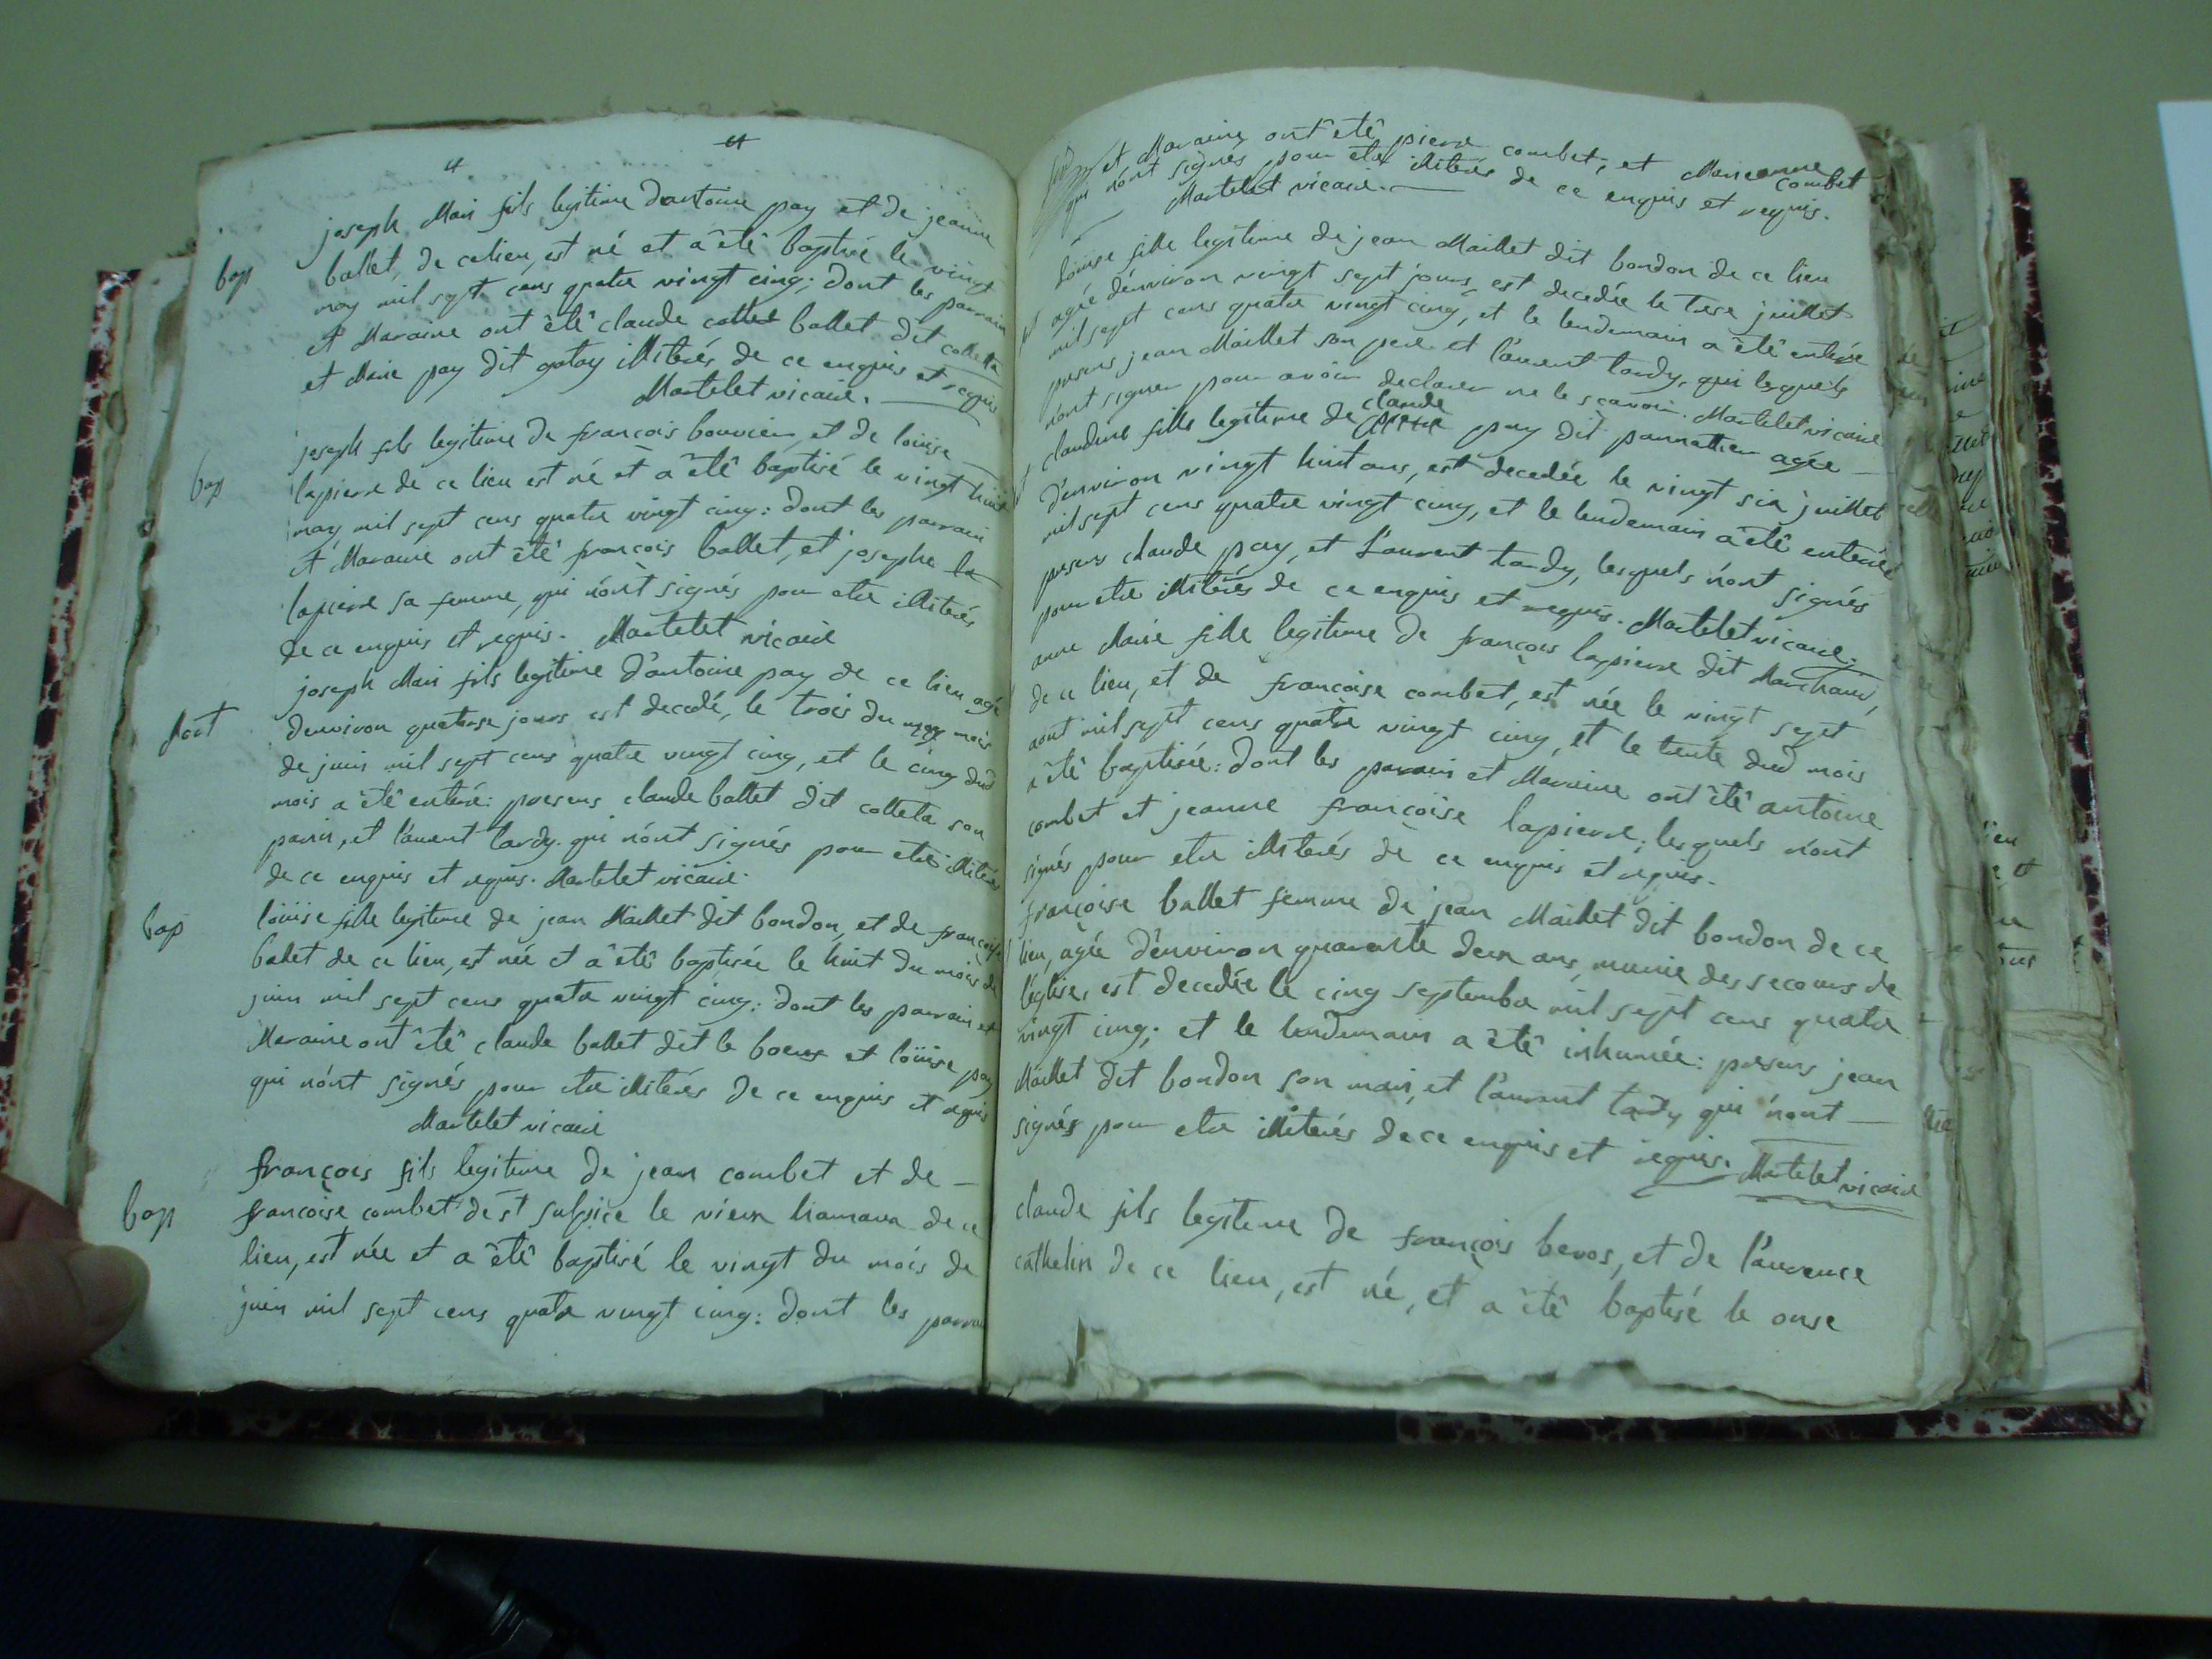 joseph Mari fils legitime d'antoine pay et de jeanne
bap
ballet, de ce lieu, est né et a êtê baptisé le vingt
may mil sept cens quatre vingt cinq; dont les parrain
et Maraine ont êtê claude ballet dit colleta
et Marie pay dit gotay illiterés de ce enquis et requis
Martelet vicaire.
joseph fils legitime de françois bouvier et de loüise
bap
lapierre de ce lieu est né et a êtê baptisé le vingt huit
may, mil sept cens quatre vingt cinq: dont les parrain
et Maraine ont êtê françois ballet, et josephe la
lapierre sa femme, qui n'ont signés pour etre illiterés
de ce enquis et requis. Martelet vicaire
joseph Mari fils legitime d'antoine pay de ce lieu agé
Mort
d'environ quatorse jours est decedé, le trois du mois
de juin mil sept cens quatre vingt cinq, et le cinq dud
mois a êtê enteré: presens claude ballet dit colleta son
parin, et l'aurent tardy. qui n'ont signés pour etre illiterés
de ce enquis et requis. Martelet vicaire.
loüise fille legitime de jean Maillet dit bondon, et de françoise
bap
balet de ce lieu, est née et a êtê baptisée le huit du mois de
juin mil sept cens quatre vingt cinq: dont les parrain et
Maraine ont êtê claude ballet dit le boeuf et loüise pay
qui n'ont signés pour etre illiterés de ce enquis et requis
Martelet vicaire
françois fils legitime de jean combet et de
bap
françoise combet de st sulpice le vieux de ce
lieu, est née et a êtê baptisé le vingt du mois de
juin mil sept cens quatre vingt cinq: dont les parrain
et Maraine ont êtê pierre combet, et Marieanne combet
qui n'ont signés pour etre illiterés de ce enquis et requis.
Martelet vicaire.
loüise fille legitime de jean Maillet dit bondon de ce lieu
agée d'environ vingt sept jours, est decedée le trese juillet
mil sept cens quatre vingt cinq, et le lendemain a êtê enterée
presens jean Maillet son pere et l'aurent tardy, qui lesquels
n'ont signer pour avoir declarer ne le sçavoir. Martelet vicaire
claude
claudine fille legitime de pierre pay dit pannattier agée
d'environ vingt huit ans, est decedée le vingt six juillet
mil sept cens quatre vingt cinq, et le lendemain a êtê enterée
presens claude pay, et L'aurent tardy, lesquels n'ont signés
pour etre illiterés de ce enquis et requis. Martelet vicaire.
anne Marie fille legitime de françois lapierre dit Marchand,
de ce lieu, et de françoise combet, est née le vingt sept
aout mil sept cens quatre vingt cinq, et le trente dud mois
a êtê baptisée: dont les parrain et Maraine ont êtê antoine
combet et jeanne françoise lapierre; lesquels n'ont
signés pour etre illiterés de ce enquis et requis.
françoise ballet femme de jean Maillet dit bondon de ce
lieu, agée d'environ quarante deux ans, munie des secours de
l'église, est decedée le cinq septembre mil sept cens quatre
vingt cinq; et le lendemain a êtê inhumée: presens jean
Maillet dit bondon son mari, et l'aurent tardy qui n'ont
signés pour etre illiterés de ce enquis et requis. Martelet vicaire
claude fils legitime de françois bevos, et de l'aurence
cathelin de ce lieu, est né, et a êtê baptisé le onse